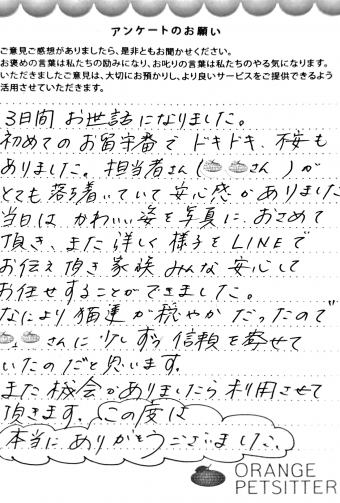 アンケートのお願い
ご意見ご感想がありましたら、是非ともお聞かせください。
お褒めの言葉は私たちの励みになり、お叱りの言葉は私たちのやる気になります。
いただきましたご意見は、大切にお預かりし、より良いサービスをご提供できるよう
活用させていただきます。
3日間 お世話になりました。
初めてのお留守番で ドキドキ、不安も
ありました。担当者さん(さん)が
とても落ち着いていて安心感がありました
当日は かわいい姿を写真に、おさめて
頂き、また詳しく様子をLINEで
お伝え頂き家族みんな安心して
お任せすることができました。
なにより猫達が穏やかだったので
さんに少しずつ信頼を寄せて
いたのだと思います。
また機会がありましたら利用させて
頂きます。この度は
本当にありがとうございました。
ORANGE
PETSITTER